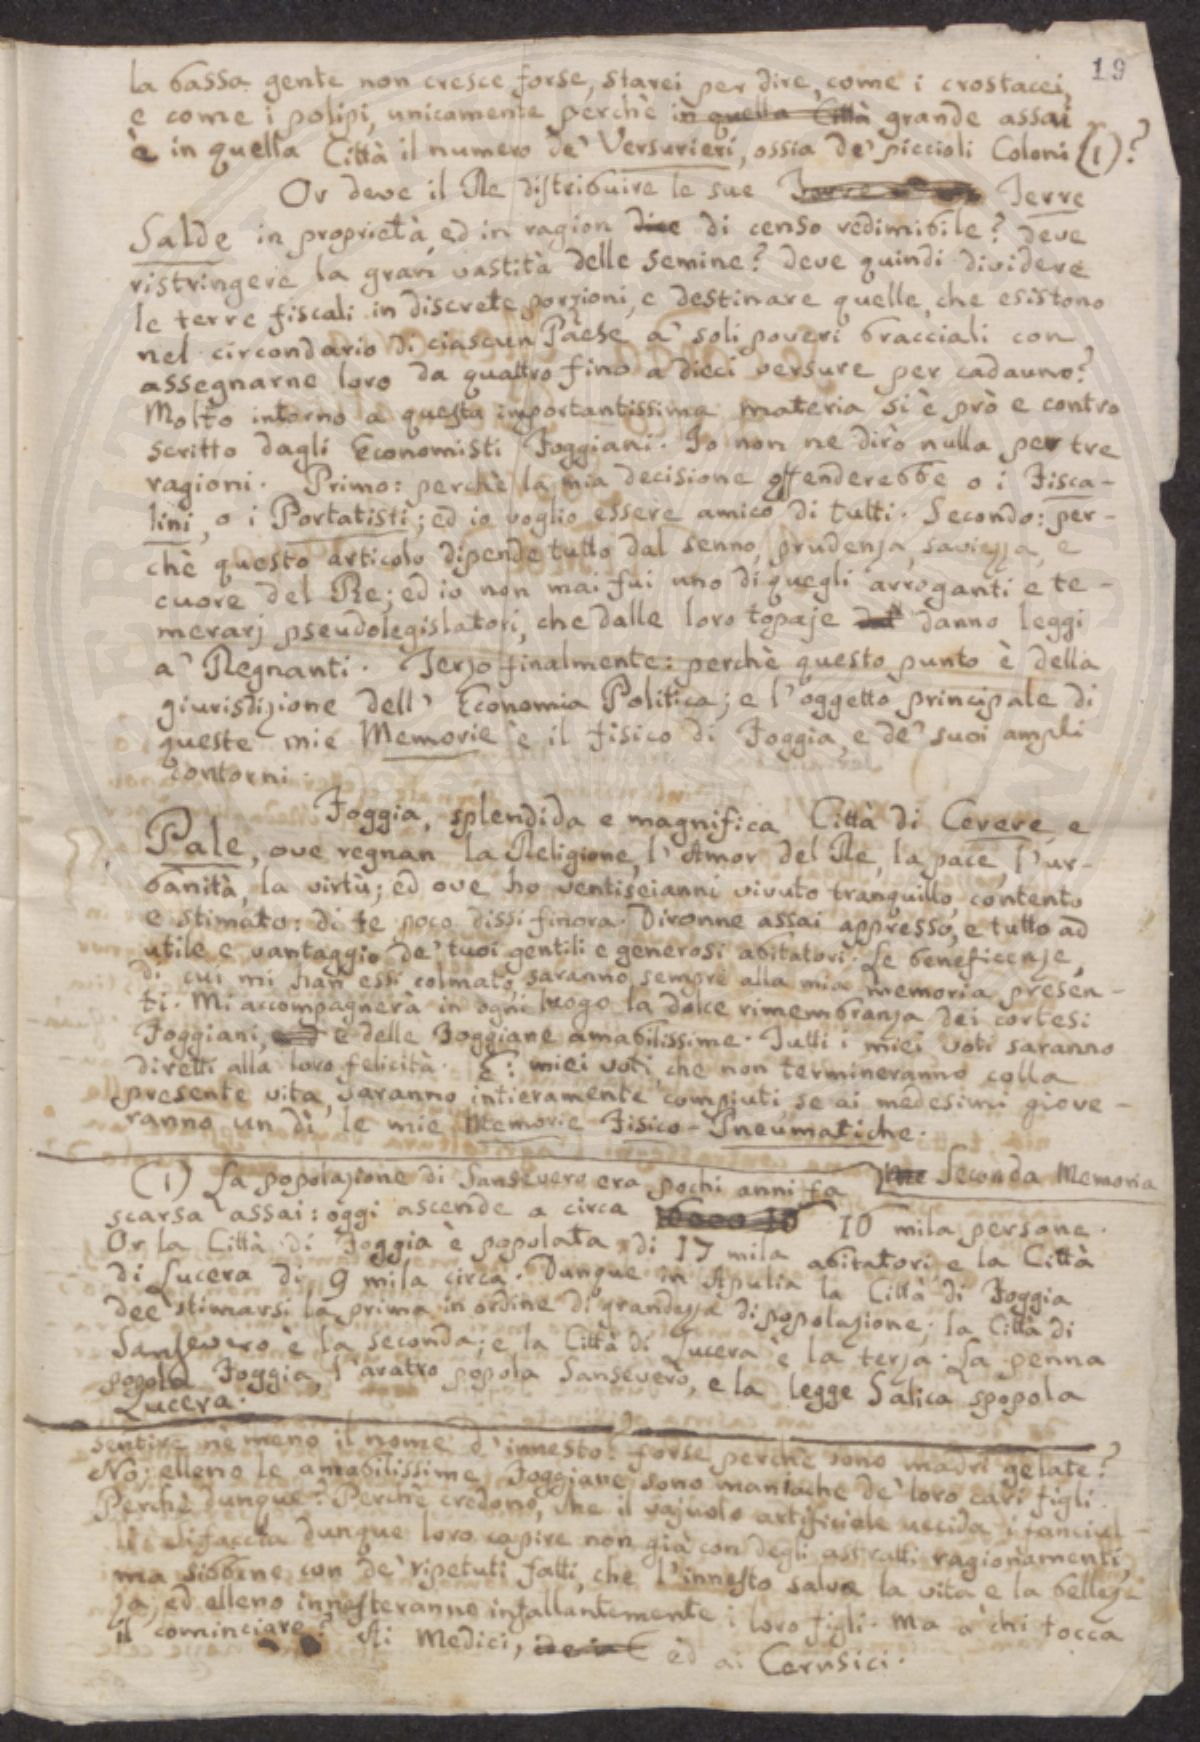 19
la bassa gente non cresce forse, starei per dire, come i crostacei,
e come i polipi, unicamente perchè in quella Città grande assai
è in quella Città il numero de' Versurieri, ossia de' piccioli Coloni (1)?
Or deve il Re distribuire le sue Terre
Salde in proprietà, ed in ragion di censo redimibile? deve
ristringere la gran vastità delle semine? deve quindi dividere
le terre fiscali in discrete porzioni, e destinare quelle, che esistono
nel circondario di ciascun Paese a' soli poveri bracciali con
assegnarne loro da quattro fino a dieci versure per cadauno?
Molto intorno a questa importantissima materia si è prò e contro
scritto dagli Economisti Foggiani. Io non ne dirò nulla per tre
ragioni. Primo: perchè la mia decisione offenderebbe o i Fisca-
lini, o i Portatisti; ed io voglio essere amico di tutti. Secondo: per-
chè questo articolo dipende tutto dal senno, prudenza, saviezza, e
cuore del Re; ed io non mai fui uno di quegli arroganti e te-
merarj pseudolegislatori, che dalle loro topaje danno leggi
a' Regnanti. Terzo finalmente: perchè questo punto è della
giurisdizione dell' Economia Politica; e l'oggetto principale di
queste mie Memorie è il fisico di Foggia, e de' suoi ampli
contorni.
Foggia, splendida e magnifica Città di Cerere, e
Pale, ove regnan la Religione, l'Amor del Re, la pace, l'ur-
banità, la virtù; ed ove ho ventiseianni vivuto tranquillo, contento
e stimato: di te poco dissi finora. Dironne assai appresso, e tutto ad
utile e vantaggio de' tuoi gentili e generosi abitatori. Le beneficenze,
di cui mi han essi colmato, saranno sempre alla mia memoria presen-
ti. Mi accompagnerà in ogni luogo la dolce rimembranza dei cortesi
Foggiani, e delle Foggiane amabilissime. Tutti i miei voti saranno
diretti alla loro felicità. E i miei voti, che non termineranno colla
presente vita, saranno intieramente compiuti, se ai medesimi giove-
ranno un dì le mie Memorie Fisico-Pneumatiche.
Seconda Memoria
(1) La popolazione di Sansevero era pochi anni fa
scarsa assai: oggi ascende a circa 16 mila persone.
Or la Città di Foggia è popolata di 17 mila abitatori, e la Città
di Lucera di 9 mila circa. Dunque in Apulia la Città di Foggia
dee stimarsi la prima in ordine di grandezza di popolazione; la Città di
Sansevero è la seconda; e la Città di Lucera è la terza. La penna
popola Foggia, l'aratro popola Sansevero, e la legge Salica spopola
Lucera.
sentire nè meno il nome d'innesto? forse perchè sono madri gelate?
No; elleno le amabilissime Foggiane sono maniache de' loro cari figli.
Perchè dunque? Perchè credono, che il vajuolo artificiale uccida i fanciul-
li: Si faccia dunque loro capire non già con degli astratti ragionamenti,
ma sibbene con de' ripetuti fatti, che l'innesto salva la vita e la bellez-
za; ed elleno innesteranno infallantemente i loro figli. Ma a chi tocca
il cominciare? Ai Medici, ed ai Cerusici.